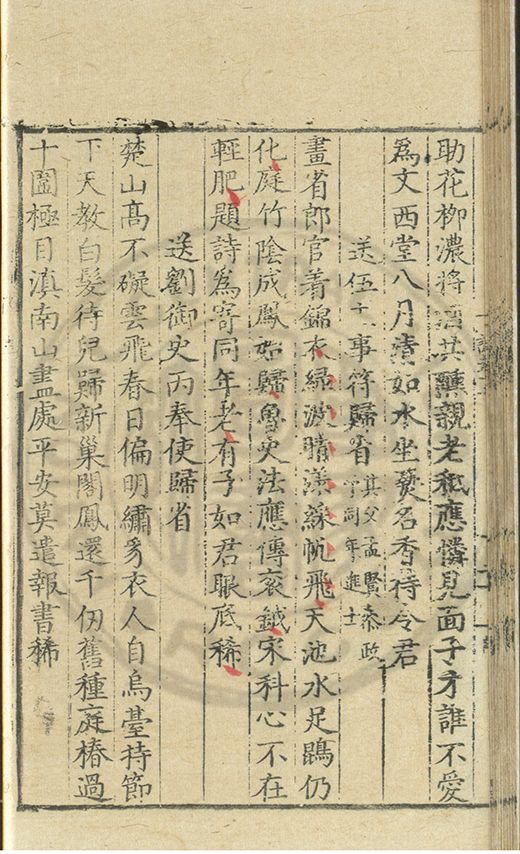 助花柳濃將酒共醺親老秪應憐見面子才誰不愛
為文西堂八月清如水坐爇名香待令君
送伍主事符歸省
其父孟賢叅政
予同年進士
畫省郎官着錦衣綠波晴漾帆飛天池水足鵾仍
化庭竹陰成鳳始歸魯史法應傳衮鉞宋科心不在
輕肥題詩為寄同年老有子如君眼底稀
送劉御史丙奉使歸省
楚山髙不礙雲飛春日偏明繡豸衣人自烏臺持節
下天教白髮待兒歸新巢閣鳳還千仞舊種庭椿過
十圍極目滇南山盡處平安莫遣報書稀